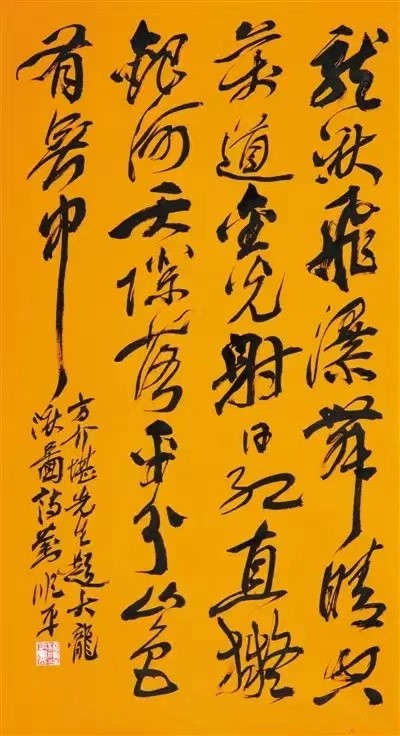 龍湫飛瀑舞晴空
萬道金光射日紅直擬
銀河天際落平分山色
有無中
方介堪先生題大龍
湫圖詩順平